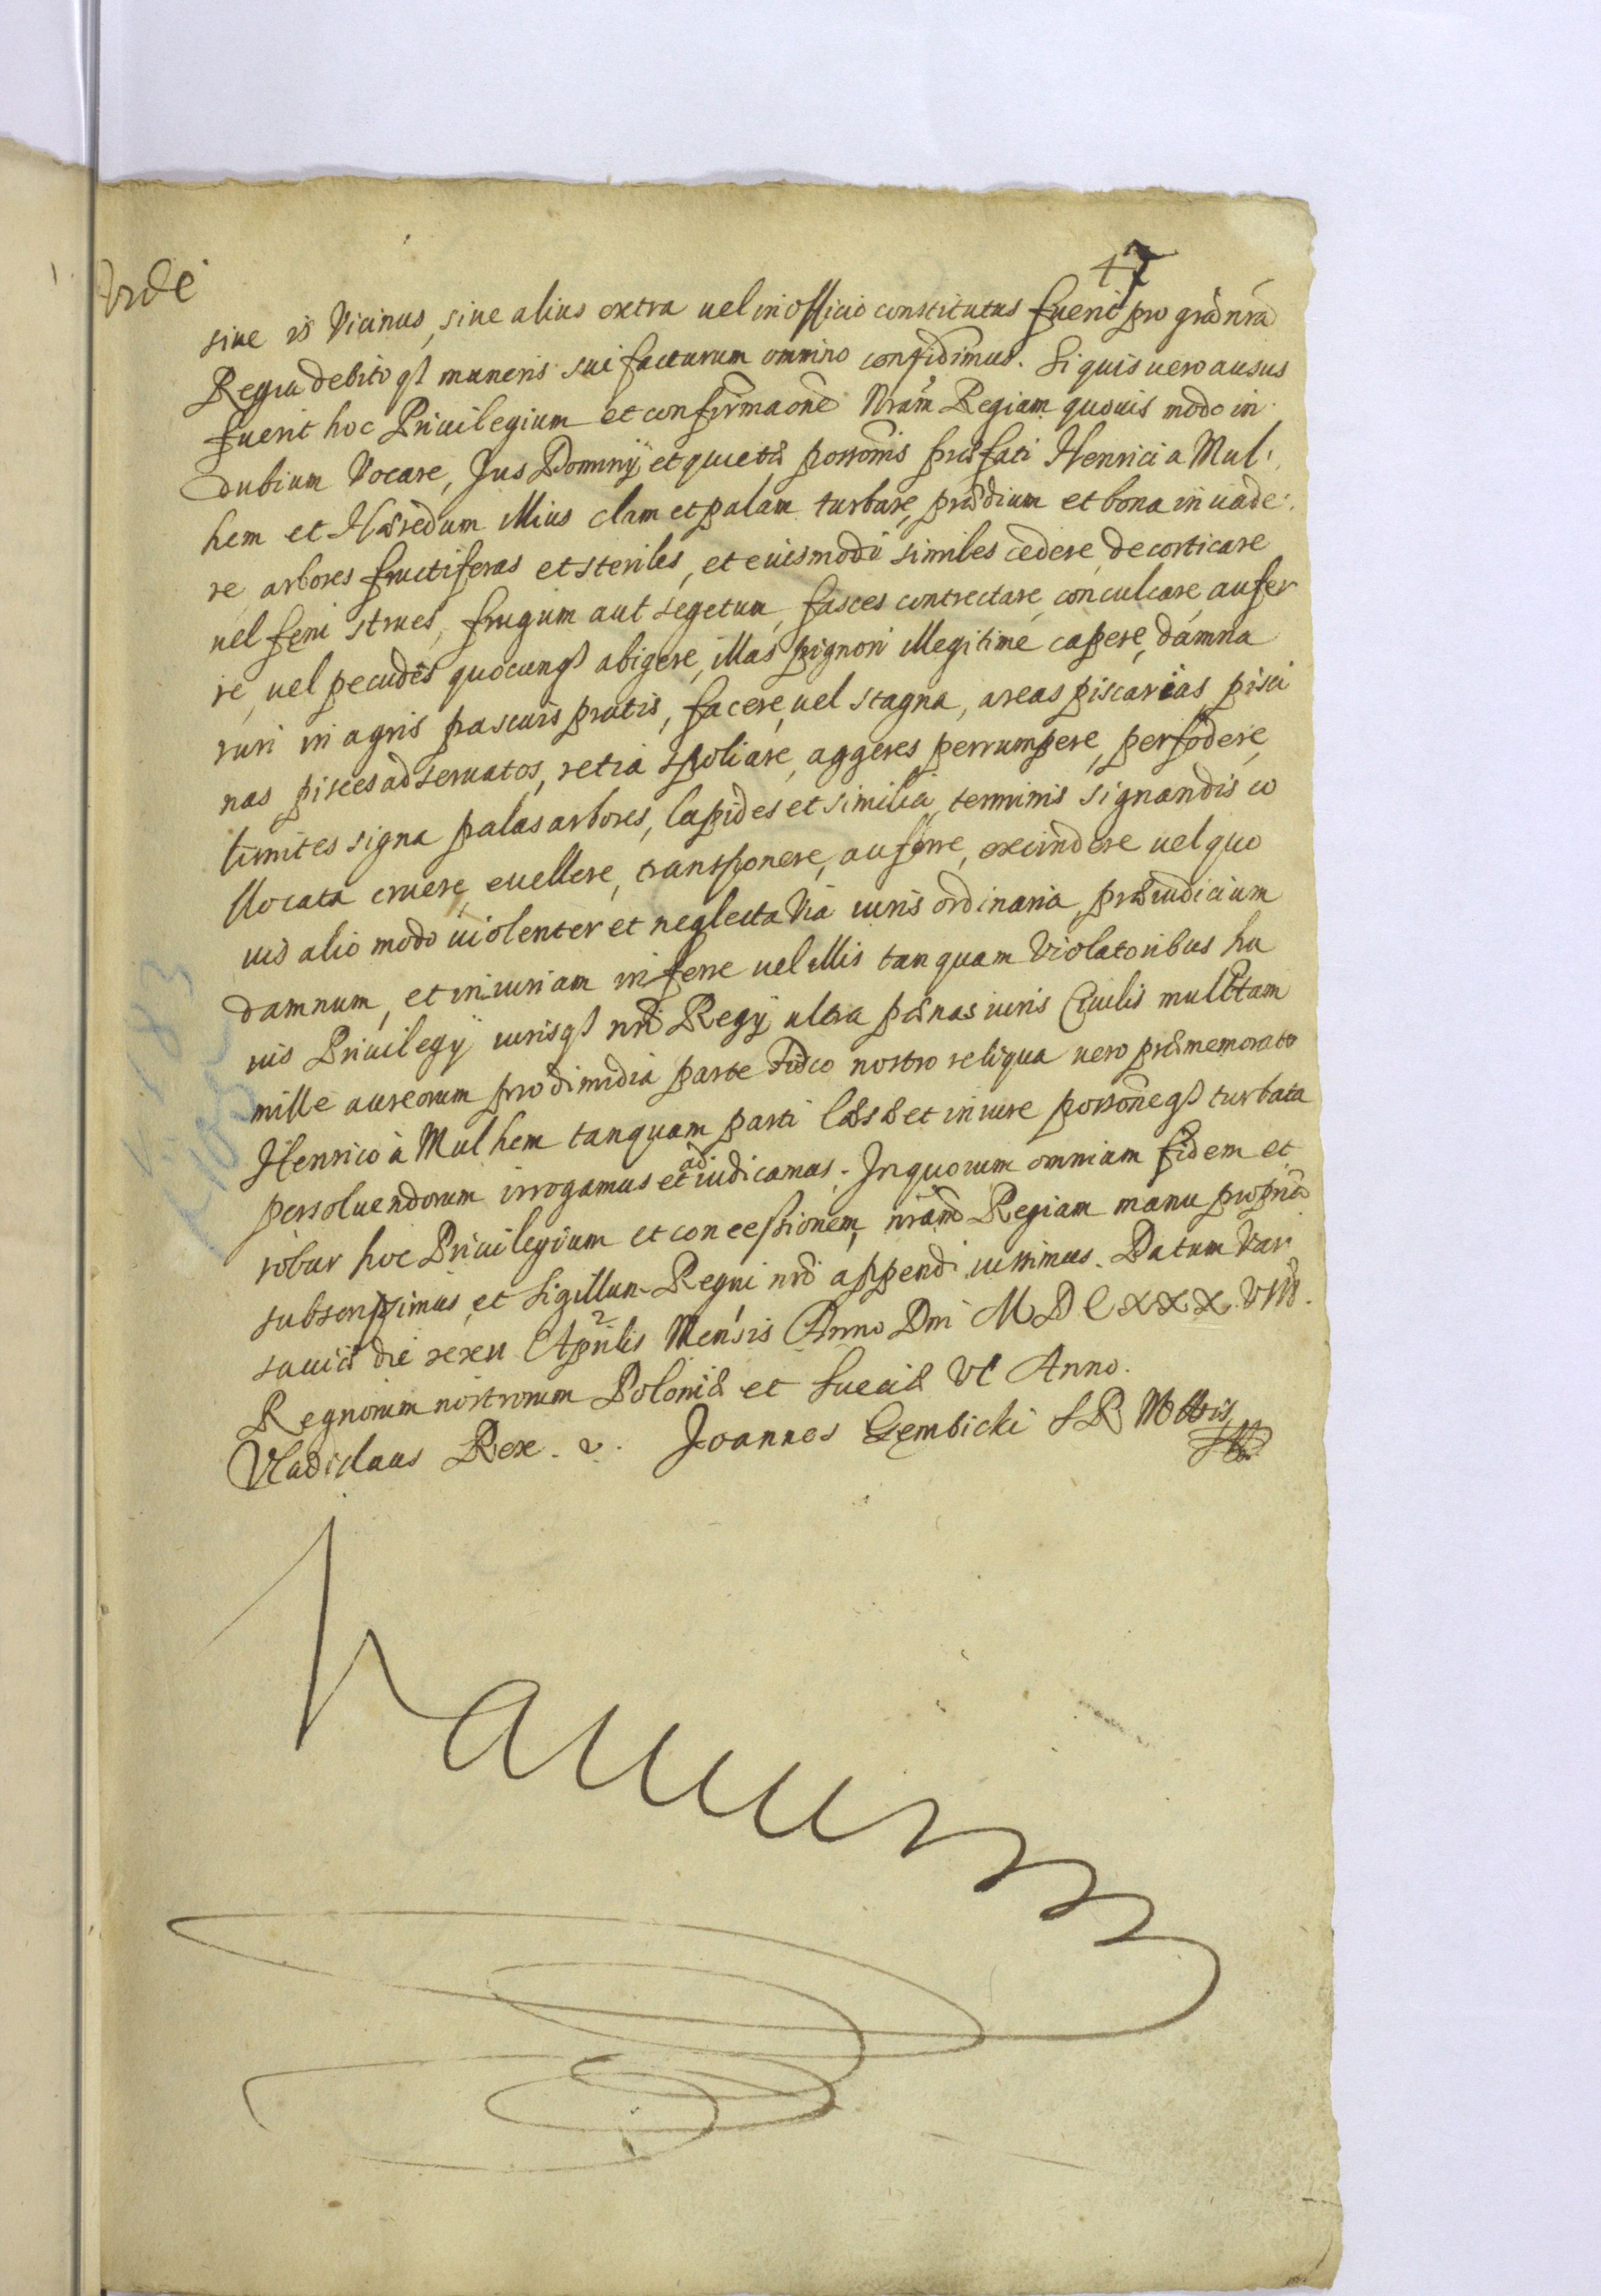 47
Vide
siue is Vicinus, siue alius extra uel in officio constitutus fuerit pro grã nrã
Regia debitoqȝ muneris sui facturum omnino confidimus. Si quis uero ausus
fuerit hoc Priuilegium et confirmaonẽ Nram̃ Regiam quouis modo in
dubium Vocare, Jus Dominÿ et quietæ possonis̃ præfati Henrici a Mul
hem et Hæredum illius clam et palam turbare, prædium et bona inuade
re arbores fructiferas et steriles, et euismodi similes cedere, decorticare
uel feni strues, frugum aut segetum, fasces contrectare, conculcare, aufer
re, uel pecudes quocunqȝ abigere, illas pignori illegitime capere, damna
ruri in agris pascuis pratis, facere, uel stagna, areas piscarias, pisci
nas pisces adseruatos, retia spoliare, aggeres perrumpere, perfodere,
limites signa palas arbores, lapides et similia, terminis signandis co
llocata eruere, euellere, transponere, auferre, excindere uel quo
uis alio modo uiolenter et neglecta Via iuris ordinaria, præiudicium
damnum, et iniuriam inferre uel illis tanquam Violatoribus hu
ius Priuilegÿ iurisqȝ nri Regÿ ultra pænas iuris Ciuilis mulctam
mille aureorum pro dimidia parte Fisco nostro reliqua uero præmemorato
Henrico à Mulhem tanquam parti læsæ et in iure possoneqȝ̃ turbata
persoluendorum irrogamus et adiudicamus. In quorum omnium fidem et
robur hoc Priuilegium et concessionem, nram̃ Regiam manu propria
subscripsimus, et Sigillum Regni nri appendi iussimus. Datum Var
sauiæ die xxxii Aprilis Mensis Anno Dni M D C x x x VIII.
Regnorum nostrorum Poloniæ et Sueciæ VI Anno.
Vladislaus Rex. Joannes Gembicki S R M